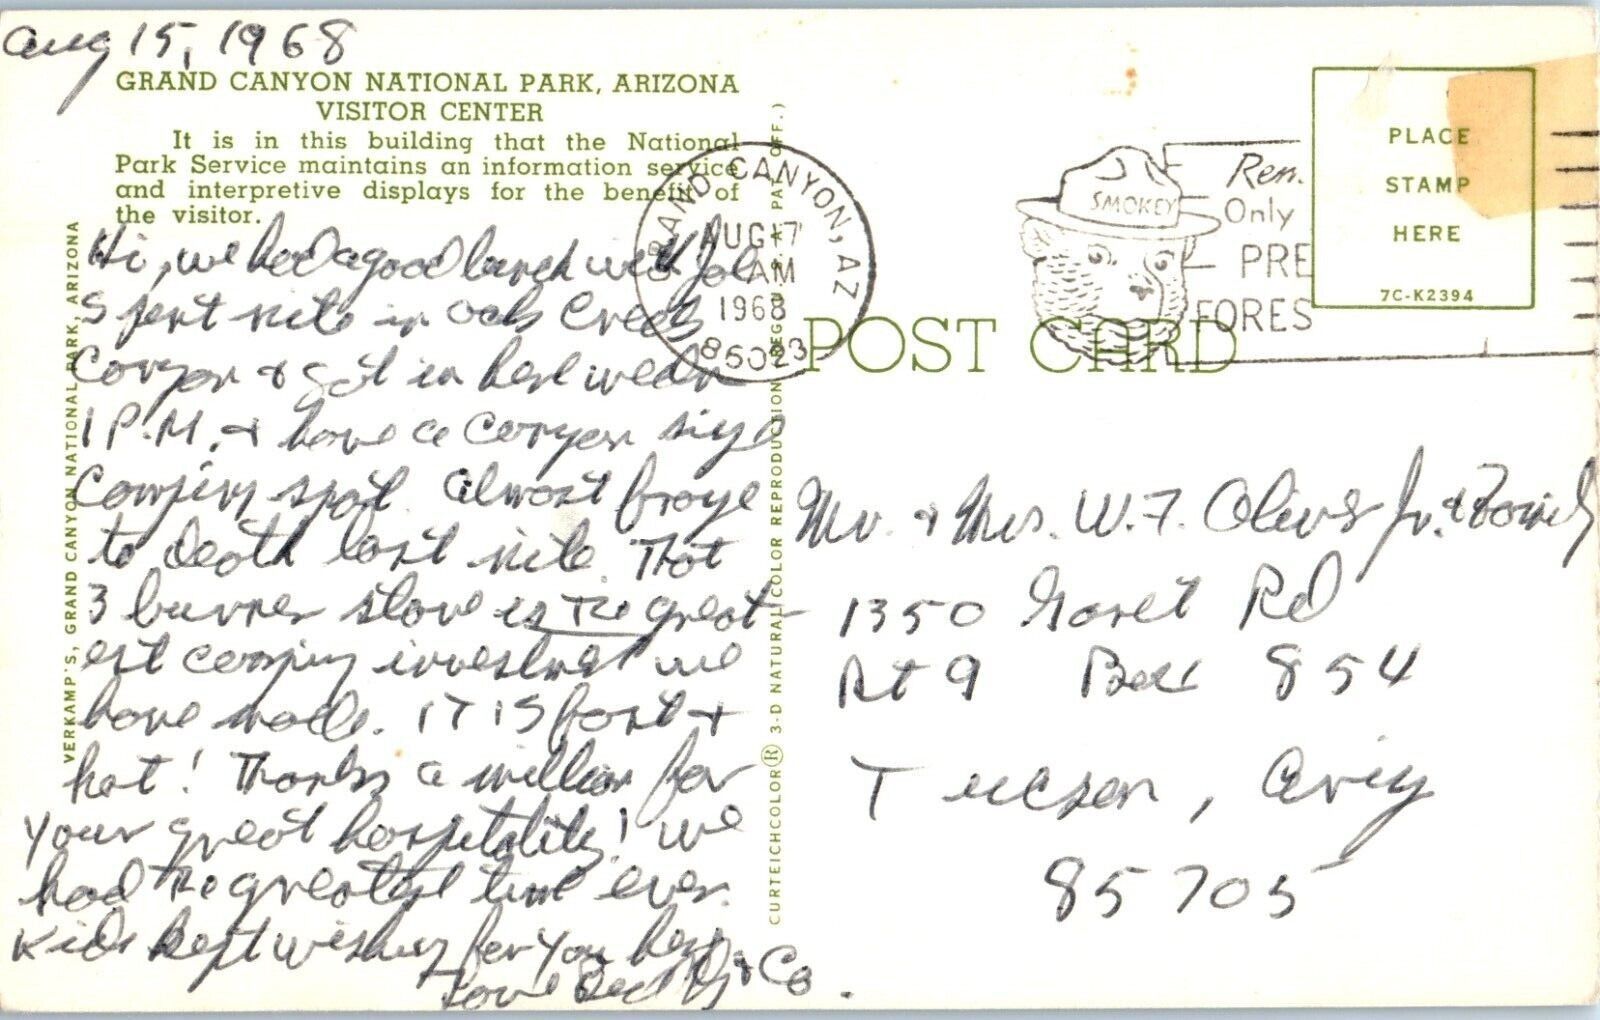 Aug 15, 1968
GRAND CANYON NATIONAL PARK, ARIZONA
VISITOR CENTER
It is in this building that the National
Park Service maintains an information service
and interpretive displays for the benefit of
the visitor.
Hi, we had a good lunch with
Spent nite in Oak Creek
Canyon & got in here wedn
1 P.M. & have a canyon
camping spot. Almost froze
to death last nite. That
3 burner stove is the great-
est camping investment we
have made. IT IS fast &
hot! Thanks a million for
your great hospitality! we
had the greatest time ever.
Kids kept wishing for you here
Love & Co.
VERKAMP'S, GRAND CANYON NATIONAL PARK, ARIZONA
CURTEICHCOLOR® 3-D NATURAL COLOR REPRODUCTION (REG. U.S.A. PAT. OFF.)
GRAND CANYON, AZ
AUG 17
AM
1968
85023
SMOKEY
Rem.
Only
PRE
FORES
PLACE
STAMP
HERE
7C-K2394
POST CARD
Mr. & Mrs. W. F. Oliver Jr. & Family
1350 Roret Rd
Rt 9 Box 854
Tucson, Ariz
85705